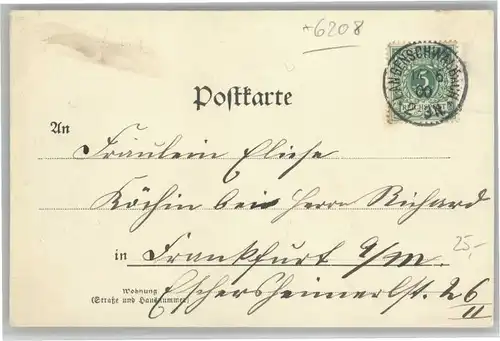 +6208
LANGENSCHWALBACH
6
00
2-3N.
5
Postkarte
An
Fräulein Eliese
Köchin bei Herrn Richard
in Frankfurt a/M.
Wohnung
(Straße und Hausnummer)
Eschersheimerlst. 26
II
25,-